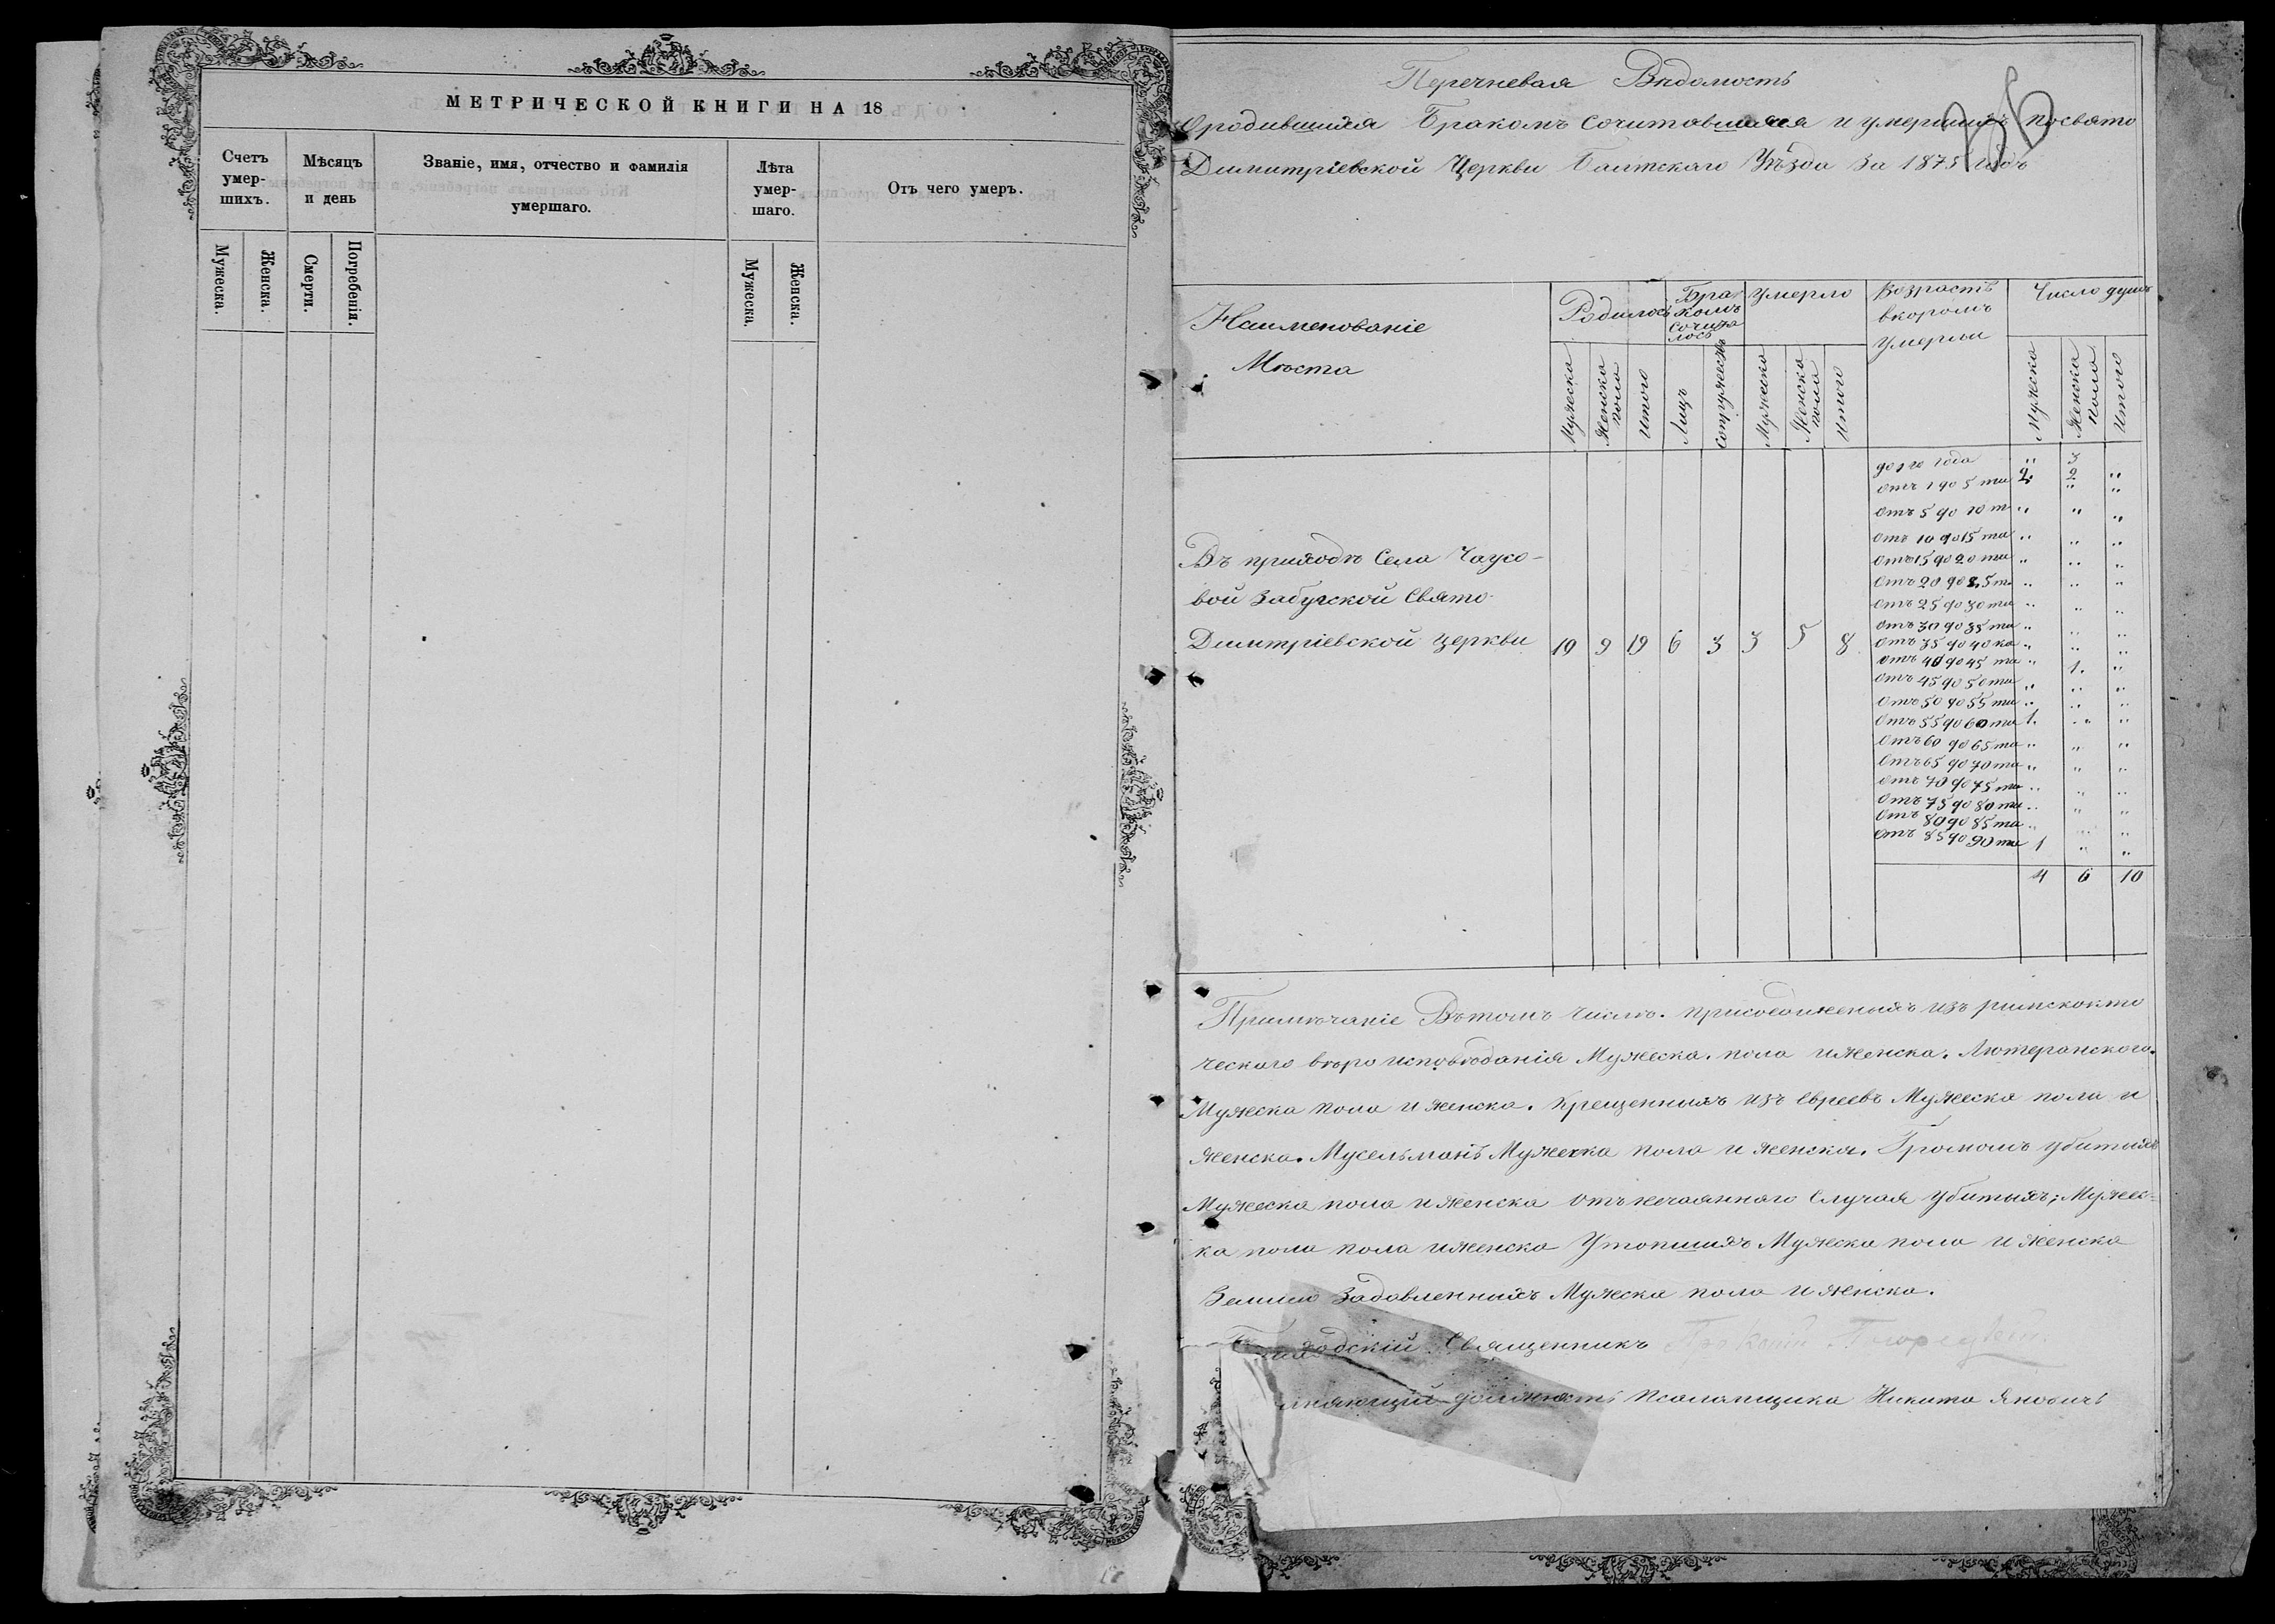 МЕТРИЧЕСКОЙ КНИГИ НА 18
Счетъ умер-шихъ.
Мѣсяцъ и день
Званіе, имя, отчество и фамилія умершаго.
Лѣта умер-шаго.
Отъ чего умеръ.
Мужеска.
Женска.
Смерти.
Погребенія.
Мужеска.
Женска.
Перечневая Вѣдомость
Ородившихся Бракомъ Сочитавшихся и умершихъ посвято
Димитріевской Церкви Балтскаго Уѣзда За 1875 годъ
Наименованіе
Мѣста
Родилось
Бра
комъ
сочита
лось
Умерло
Возрастъ
вкоромъ
Умерли
Число душъ
Мужеска
Женска пола
Итого
Лицъ
Сопружествъ
Мужеска
Женска пола
Итого
Мужеска
Женска пола
Итого
до 1го года " 3
Отъ 1 до 5 ти 2 2 "
Отъ 5 до 10 т " " "
Отъ 10 до 15 ти " " "
Отъ 15 до 20 ти " " "
Отъ 20 до 25 т " " "
Отъ 25 до 30 ти " " "
Отъ 30 до 35 ти " " "
Отъ 35 до 40 ка " " "
Отъ 40 до 45 ти " 1. "
Отъ 45 до 50 ти " " "
Отъ 50 до 55 ти " " "
Отъ 55 до 60 ти 1. " "
Отъ 60 до 65 ти " " "
Отъ 65 до 70 ти " " "
Отъ 70 до 75 ти " " "
Отъ 75 до 80 ти " " "
Отъ 80 до 85 ти " " "
Отъ 85 до 90 ти 1 " "
4 6 10
Въ приходѣ Села Чаусо-
вой Забугской Свято-
Димитріевской церкви 10 9 19 6 3 3 5 8
Примѣчаніе Вътомъ числѣ. присоединеныхъ изъ римскокто
ческаго вѣроисповѣданія Мужеска. пола иженска. Лютеранскаго.
Мужеска пола и женска. Крещенныхъ изъ Евреевъ Мужеска пола и
женска. Мусельманъ Мужеска пола и женска. Громомъ убитыхъ
Мужеска пола и женска Отънечаяннаго Случая убитыхъ; Мужес-
ка пола пола иженска Утопшихъ Мужеска пола и женска
Землею Задавленныхъ Мужеска пола и женска.
Священникъ
должность Псаломщика Никита Яновичъ